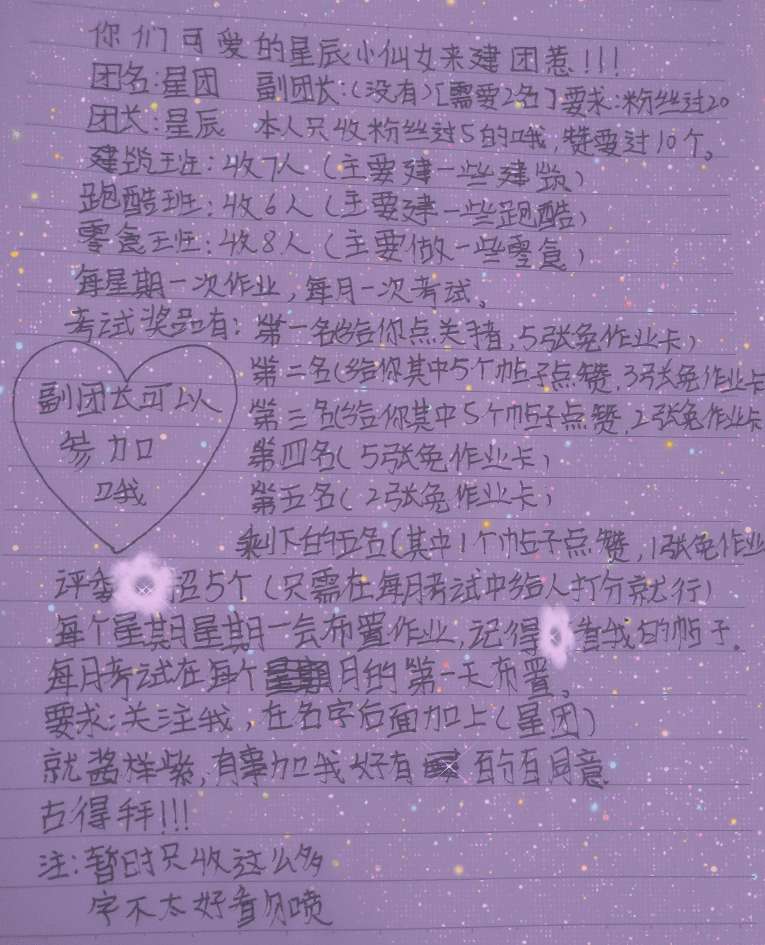 你们可爱的星辰小仙女来建团惹!!!
团名:星团 副团长:(没有)[需要2名]要求:粉丝过20
团长:星辰 本人只收粉丝过5的哦,赞要过10个。
建筑班:收7人(主要建一些建筑)
跑酷班:收6人(主要建一些跑酷)
零食班:收8人(主要做一些零食)
每星期一次作业,每月一次考试。
考试奖品有:第一名(给你点关猪,5张免作业卡)
第二名(给你其中5个帖子点赞,3张免作业卡
第三名(给你其中5个帖子点赞,2张免作业卡
第四名(5张免作业卡)
第五名(2张免作业卡)
剩下的五名(其中1个帖子点赞,1张免作业
副团长可以
参加
哦
评委 招5个(只需在每月考试中给人打分就行)
每个星期星期一会布置作业,记得 看我的帖子。
每月考试在每个月的第一天布置。
要求:关注我,在名字后面加上(星团)
就酱样紫,有事加我好有 百分百同意
古得拜!!!
注:暂时只收这么多
字不太好看勿喷